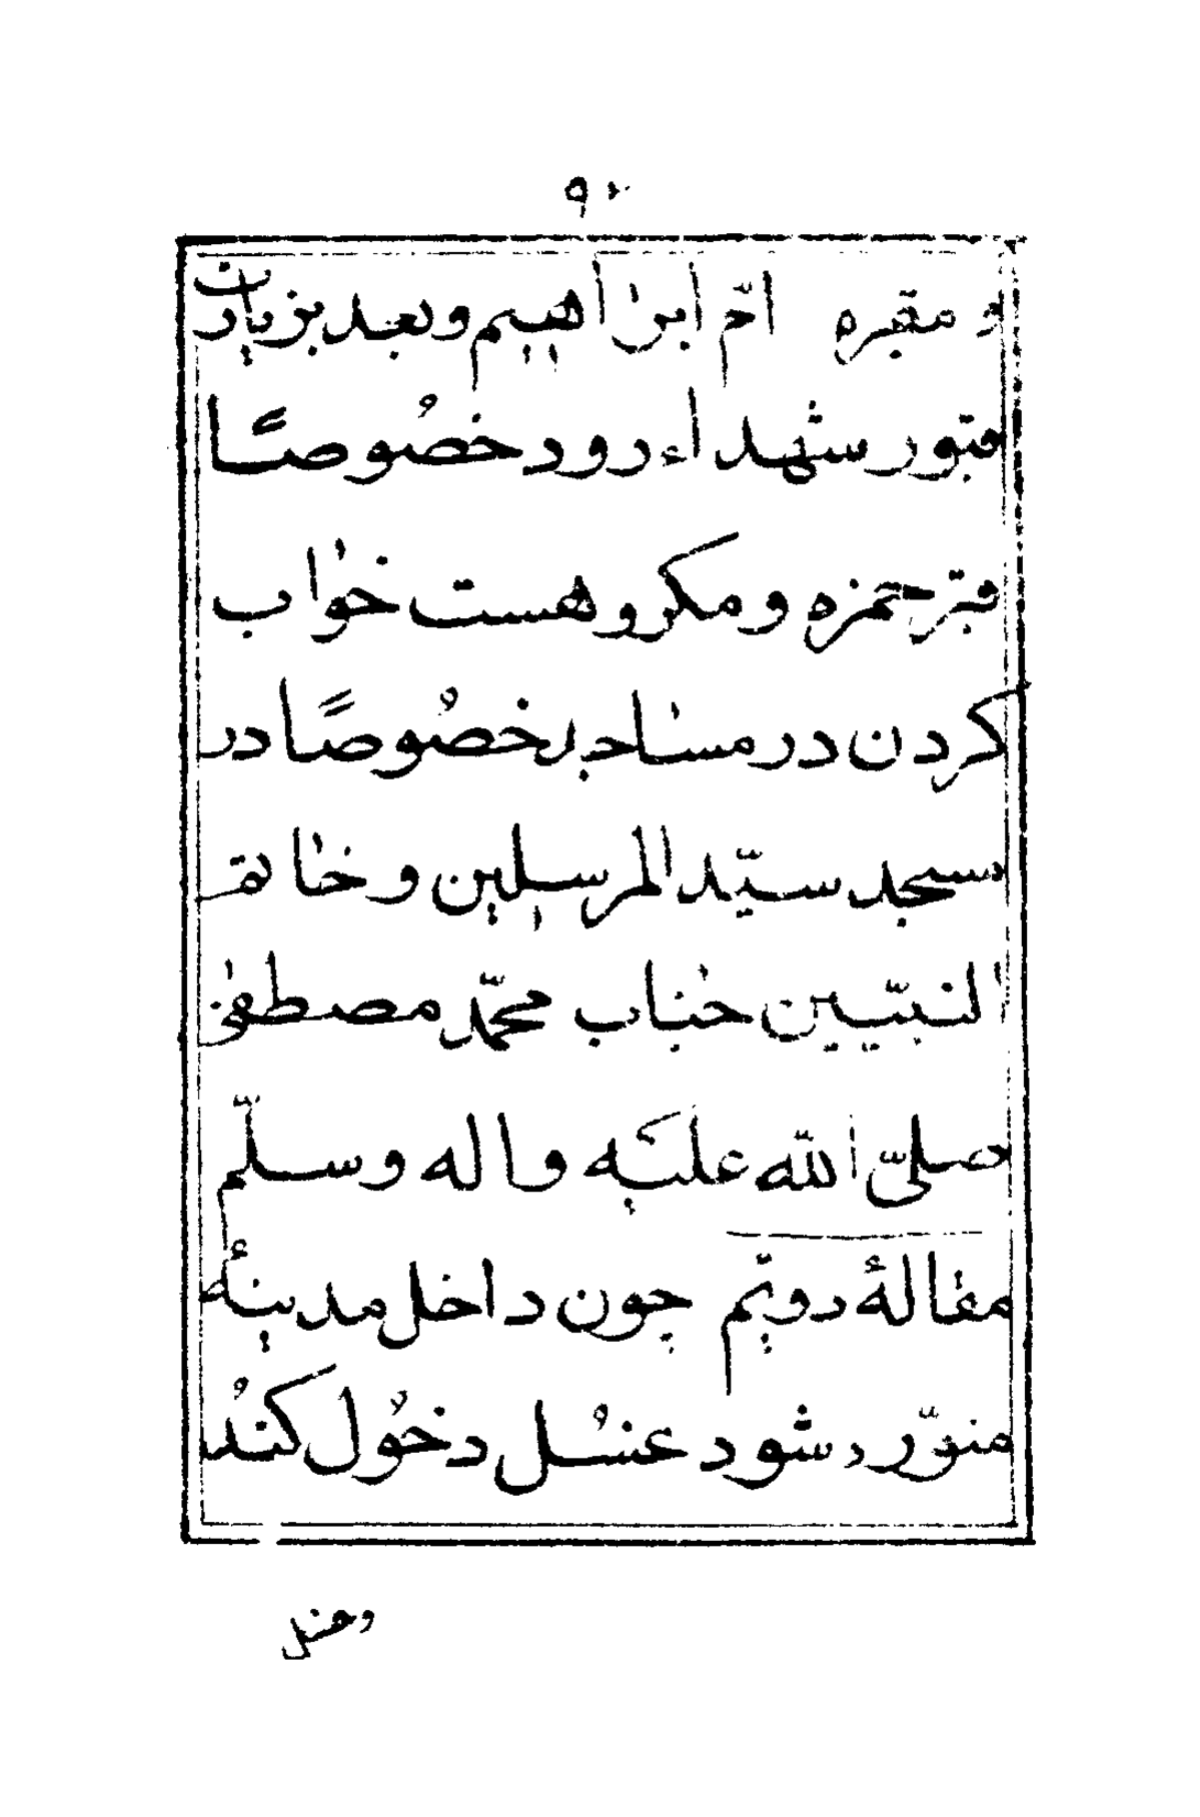 ۹۰
و مقبره امّ ابراهیم و بعد بزیارت
قبور شهداء رود خصُوصًا
قبر حمزه و مکروهست خواب
کردن در مساجد خصُوصًا در
مسجد سیّد المرسلین و خاتم
النبیّین جناب محمّد مصطفی
صلیّ اللّه علیَه و اله و سلّم
مقالهٔ دویّم چون داخل مدینهٔ
منوّره شود غسُل دخُول کندُ
وقبل